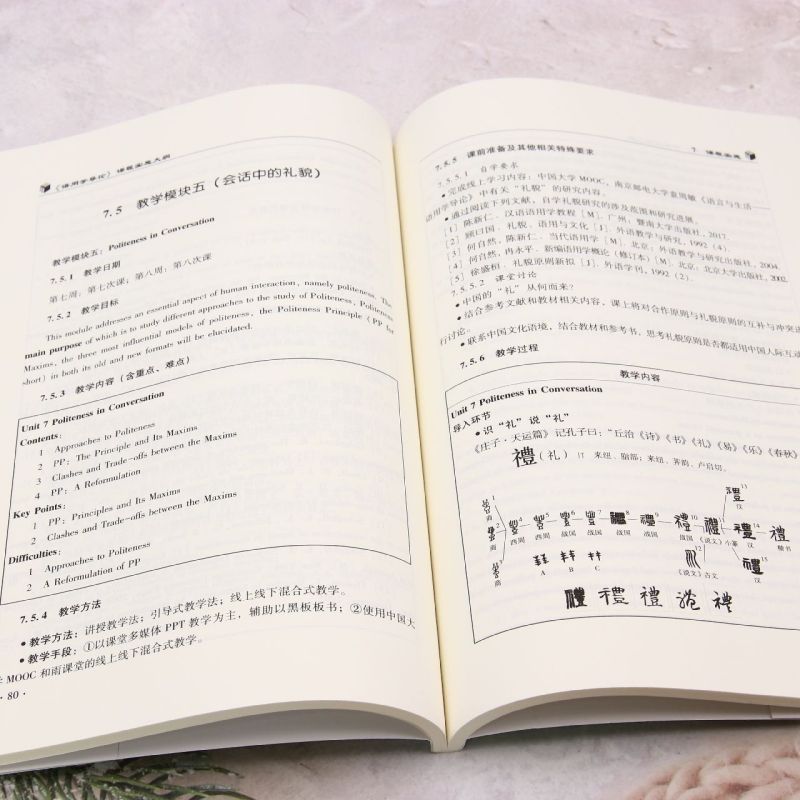 《语用学导论》课程实施大纲
7.5 教学模块五（会话中的礼貌）
教学模块五：Politeness in Conversation
7.5.1 教学日期
第七周：第七次课，第八周：第八次课
7.5.2 教学目标
This module addresses an essential aspect of human interaction, namely politeness. The
main purpose of which is to study different approaches to the study of Politeness, Politeness
Maxims, the three most influential models of politeness, the Politeness Principle (PP for
short) in both its old and new formats will be elucidated.
7.5.3 教学内容（含重点、难点）
Unit 7 Politeness in Conversation
Contents:
1 Approaches to Politeness
2 PP: The Principle and Its Maxims
3 Clashes and Trade-offs between the Maxims
4 PP: A Reformulation
Key Points:
1 PP: Principles and Its Maxims
2 Clashes and Trade-offs between the Maxims
Difficulties:
1 Approaches to Politeness
2 A Reformulation of PP
7.5.4 教学方法
●教学方法：讲授教学法；引导式教学法；线上线下混合式教学。
●教学手段：①以课堂多媒体 PPT 教学为主，辅助以黑板板书；②使用中国大
学 MOOC 和雨课堂的线上线下混合式教学。
· 80 ·
7 课程实施
7.5.5 课前准备及其他相关特殊要求
7.5.5.1 自学要求
●完成线上学习内容：中国大学 MOOC，南京邮电大学童周敏《语言与生活——
语用学导论》中有关“礼貌”的研究内容。
●通过阅读下列文献，自学礼貌研究的涉及范围和研究进展。
[1] 陈新仁．汉语语用学教程 [M]．广州：暨南大学出版社，2017.
[2] 顾曰国．礼貌、语用与文化 [J]．外语教学与研究，1992 (4).
[3] 何自然，陈新仁．当代语用学 [M]．北京：外语教学与研究出版社，2004.
[4] 何自然，冉永平．新编语用学概论（修订本）[M]．北京：北京大学出版社，2002.
[5] 徐盛桓．礼貌原则新拟 [J]．外语学刊，1992 (2).
7.5.5.2 课堂讨论
●中国的“礼”从何而来？
●结合参考文献和教材相关内容，课上将对合作原则与礼貌原则的互补与冲突进
行讨论。
●联系中国文化语境，结合教材和参考书，思考礼貌原则是否都适用中国人际互动
7.5.6 教学过程
教学内容
Unit 7 Politeness in Conversation
导入环节
●识“礼”说“礼”
《庄子·天运篇》记孔子曰：“丘治《诗》《书》《礼》《易》《乐》《春秋》
禮（礼） 来纽、脂部；来纽、荠韵、卢启切。
1 商 2 商 3 商 4 西周 5 西周 6 战国 7 战国 8 战国 9 战国 10 战国 11 《说文》小篆 12 《说文》古文 13 汉 14 汉 15 汉 隶书
A B C
禮 禮 禮